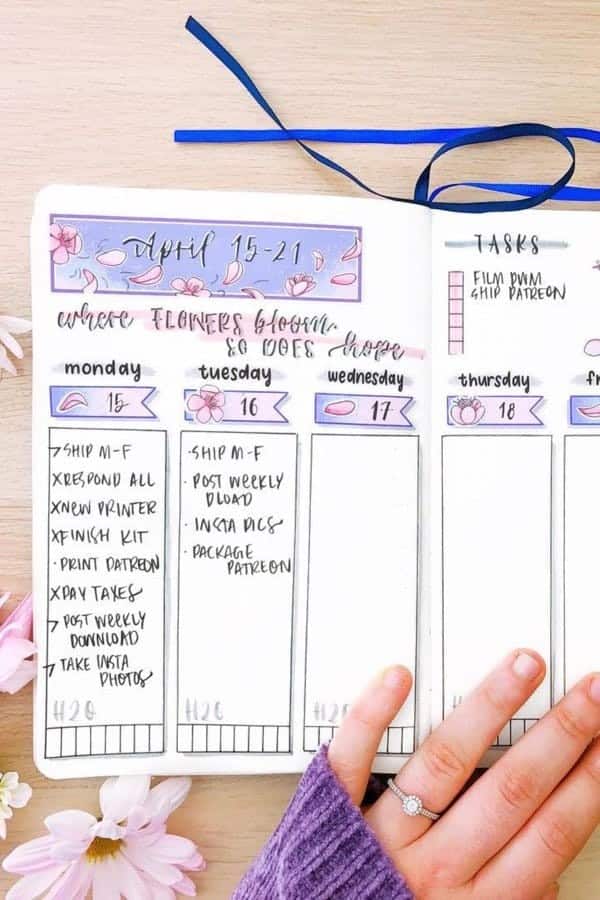 April 15-21
where FLOWERS bloom
SO DOES hope
monday
15
> SHIP M-F
X RESPOND ALL
X NEW PRINTER
X FINISH KIT
· PRINT PATREON
X PAY TAXES
> POST WEEKLY
DOWNLOAD
> TAKE INSTA
PHOTOS
H2O
tuesday
16
· SHIP M-F
· POST WEEKLY
DLOAD
· INSTA PICS
· PACKAGE
PATREON
H2O
wednesday
17
H2O
TASKS
FILM PWM
SHIP PATREON
thursday
18
fr